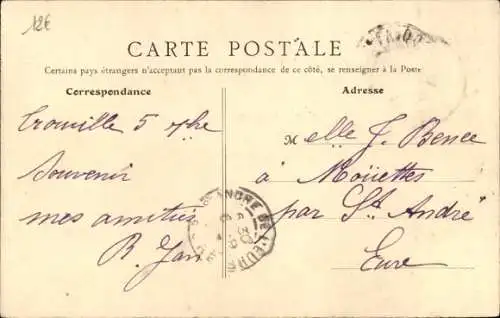 12€
CARTE POSTALE
Certains pays étrangers n'acceptant pas la correspondance de ce côté, se renseigner à la Poste
Correspondance
Adresse
Trouville 5
Souvenir
mes amitiés
R. Jan
Melle J. Bence
à Moüettes
par St. André
Eure
ANDRE DE L'EURE